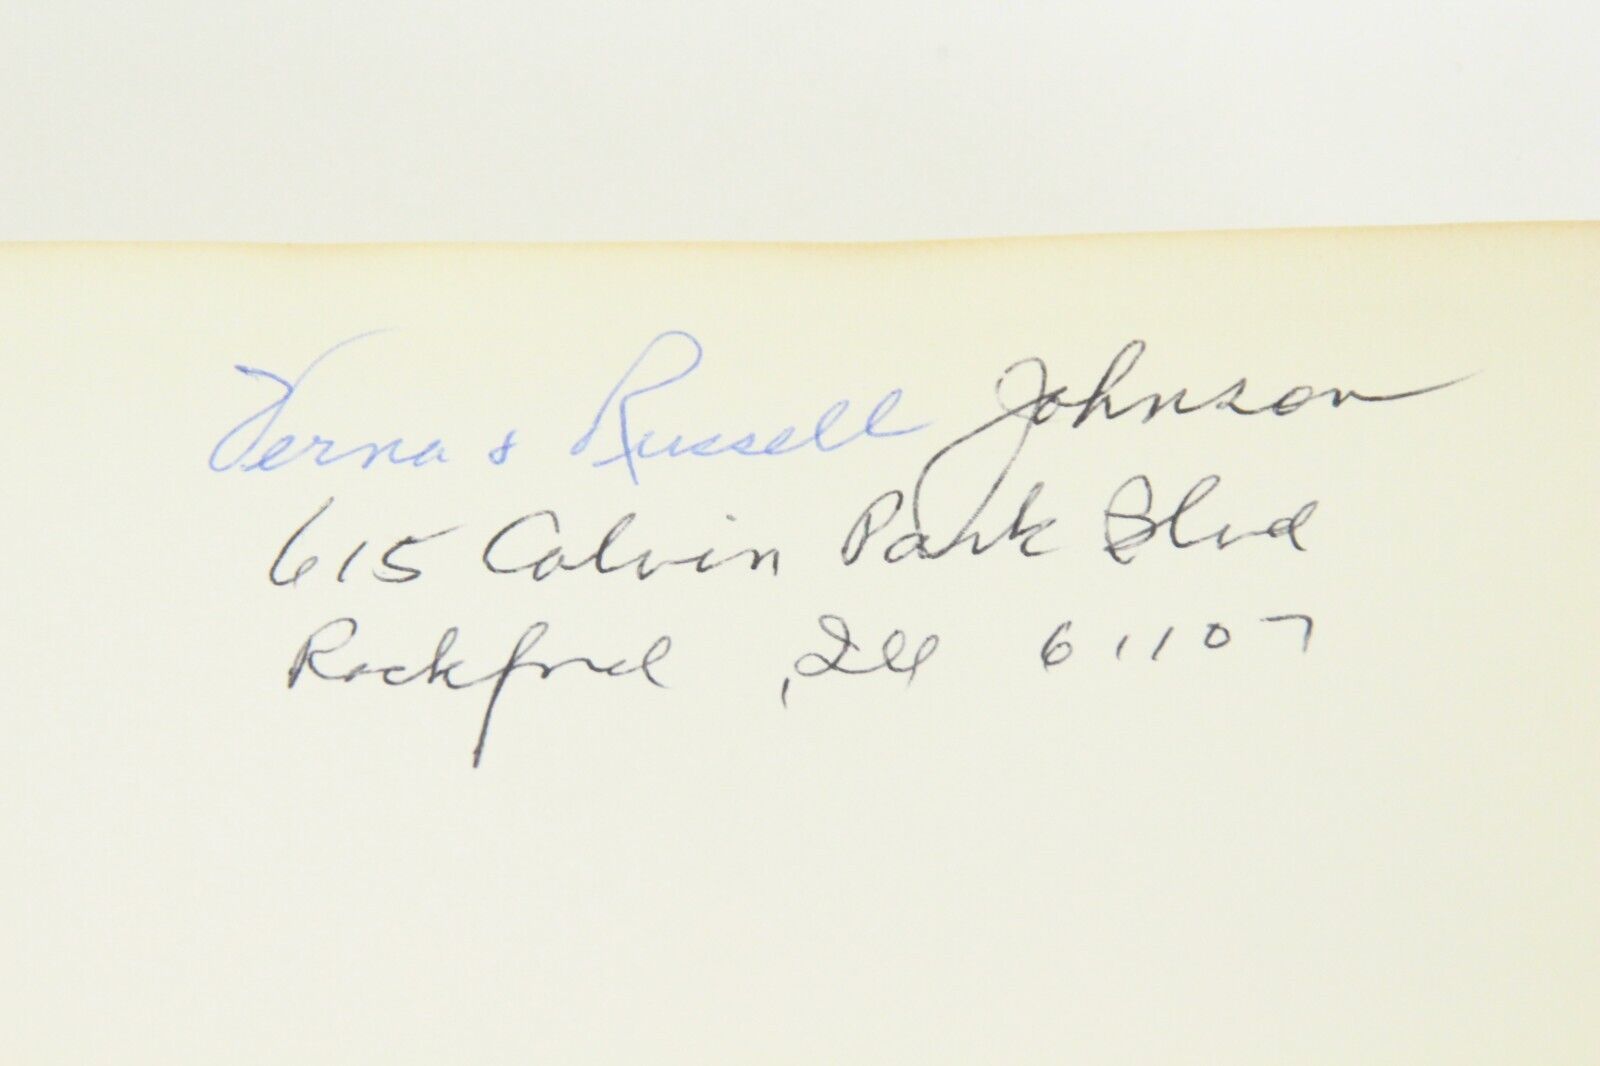 Verna & Russell Johnson
615 Calvin Park Blvd
Rockford, Ill 61107